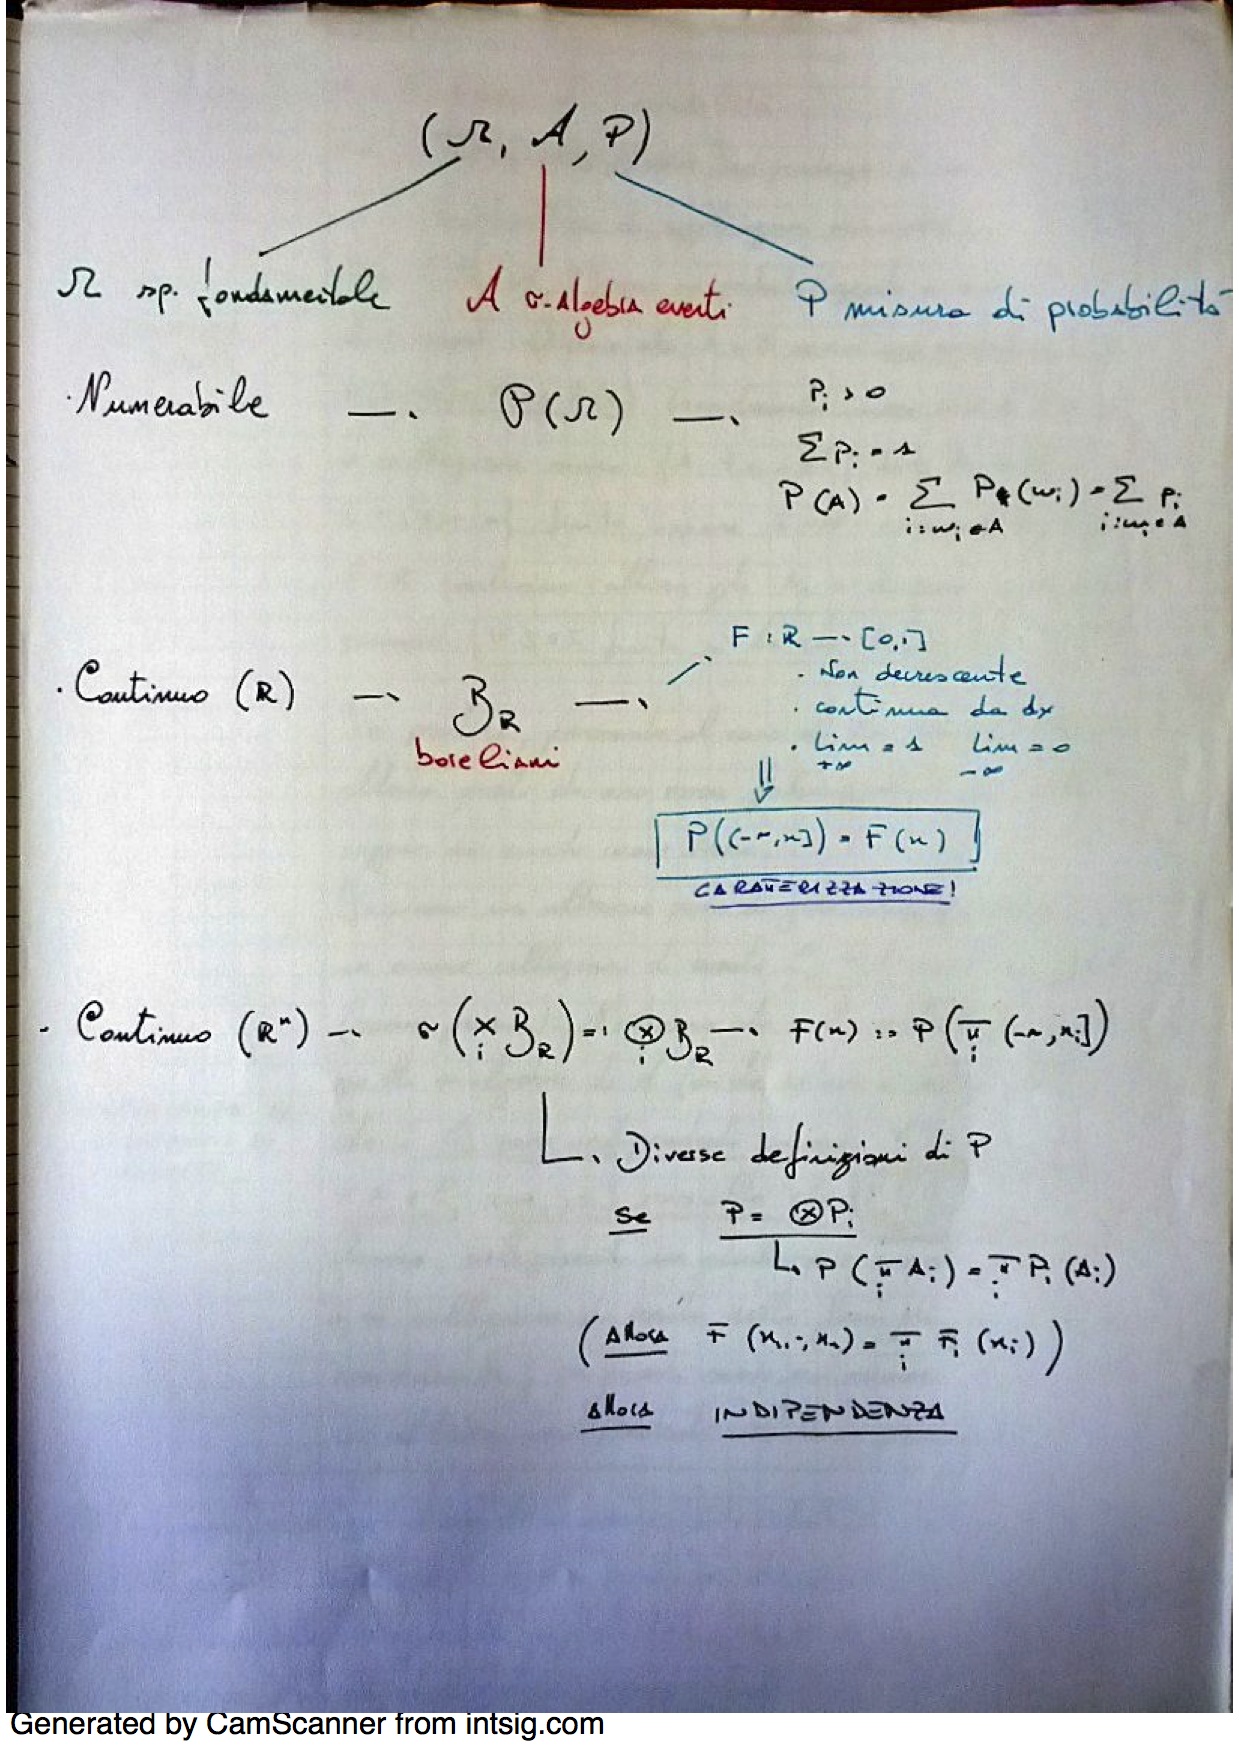 (Ω, A, P)
Ω sp. fondamentale A σ-Algebra eventi P misura di probabilità
· Numerabile → P(Ω) → Pi > 0
Σ Pi = 1
P(A) = Σ P(ωi) = Σ Pi
i:ωi∈A i:ωi∈A
F : R → [0,1]
· Continuo (R) → B_R →
· Non decrescente
· continua da dx
boreliani
· Lim = 1 Lim = 0
+∞ -∞
⇓
P((-∞,x]) = F(x)
CARATTERIZZAZIONE!
- Continuo (Rⁿ) → σ(×_i B_R) =: ⊗_i B_R → F(x) := P(π_i (-∞,xi])
↳ Diverse definizioni di P
se P = ⊗Pi
↳ P(π_i Ai) = π_i Pi(Ai)
(allora F(x1,..,xn) = π_i Fi(xi))
allora INDIPENDENZA
Generated by CamScanner from intsig.com